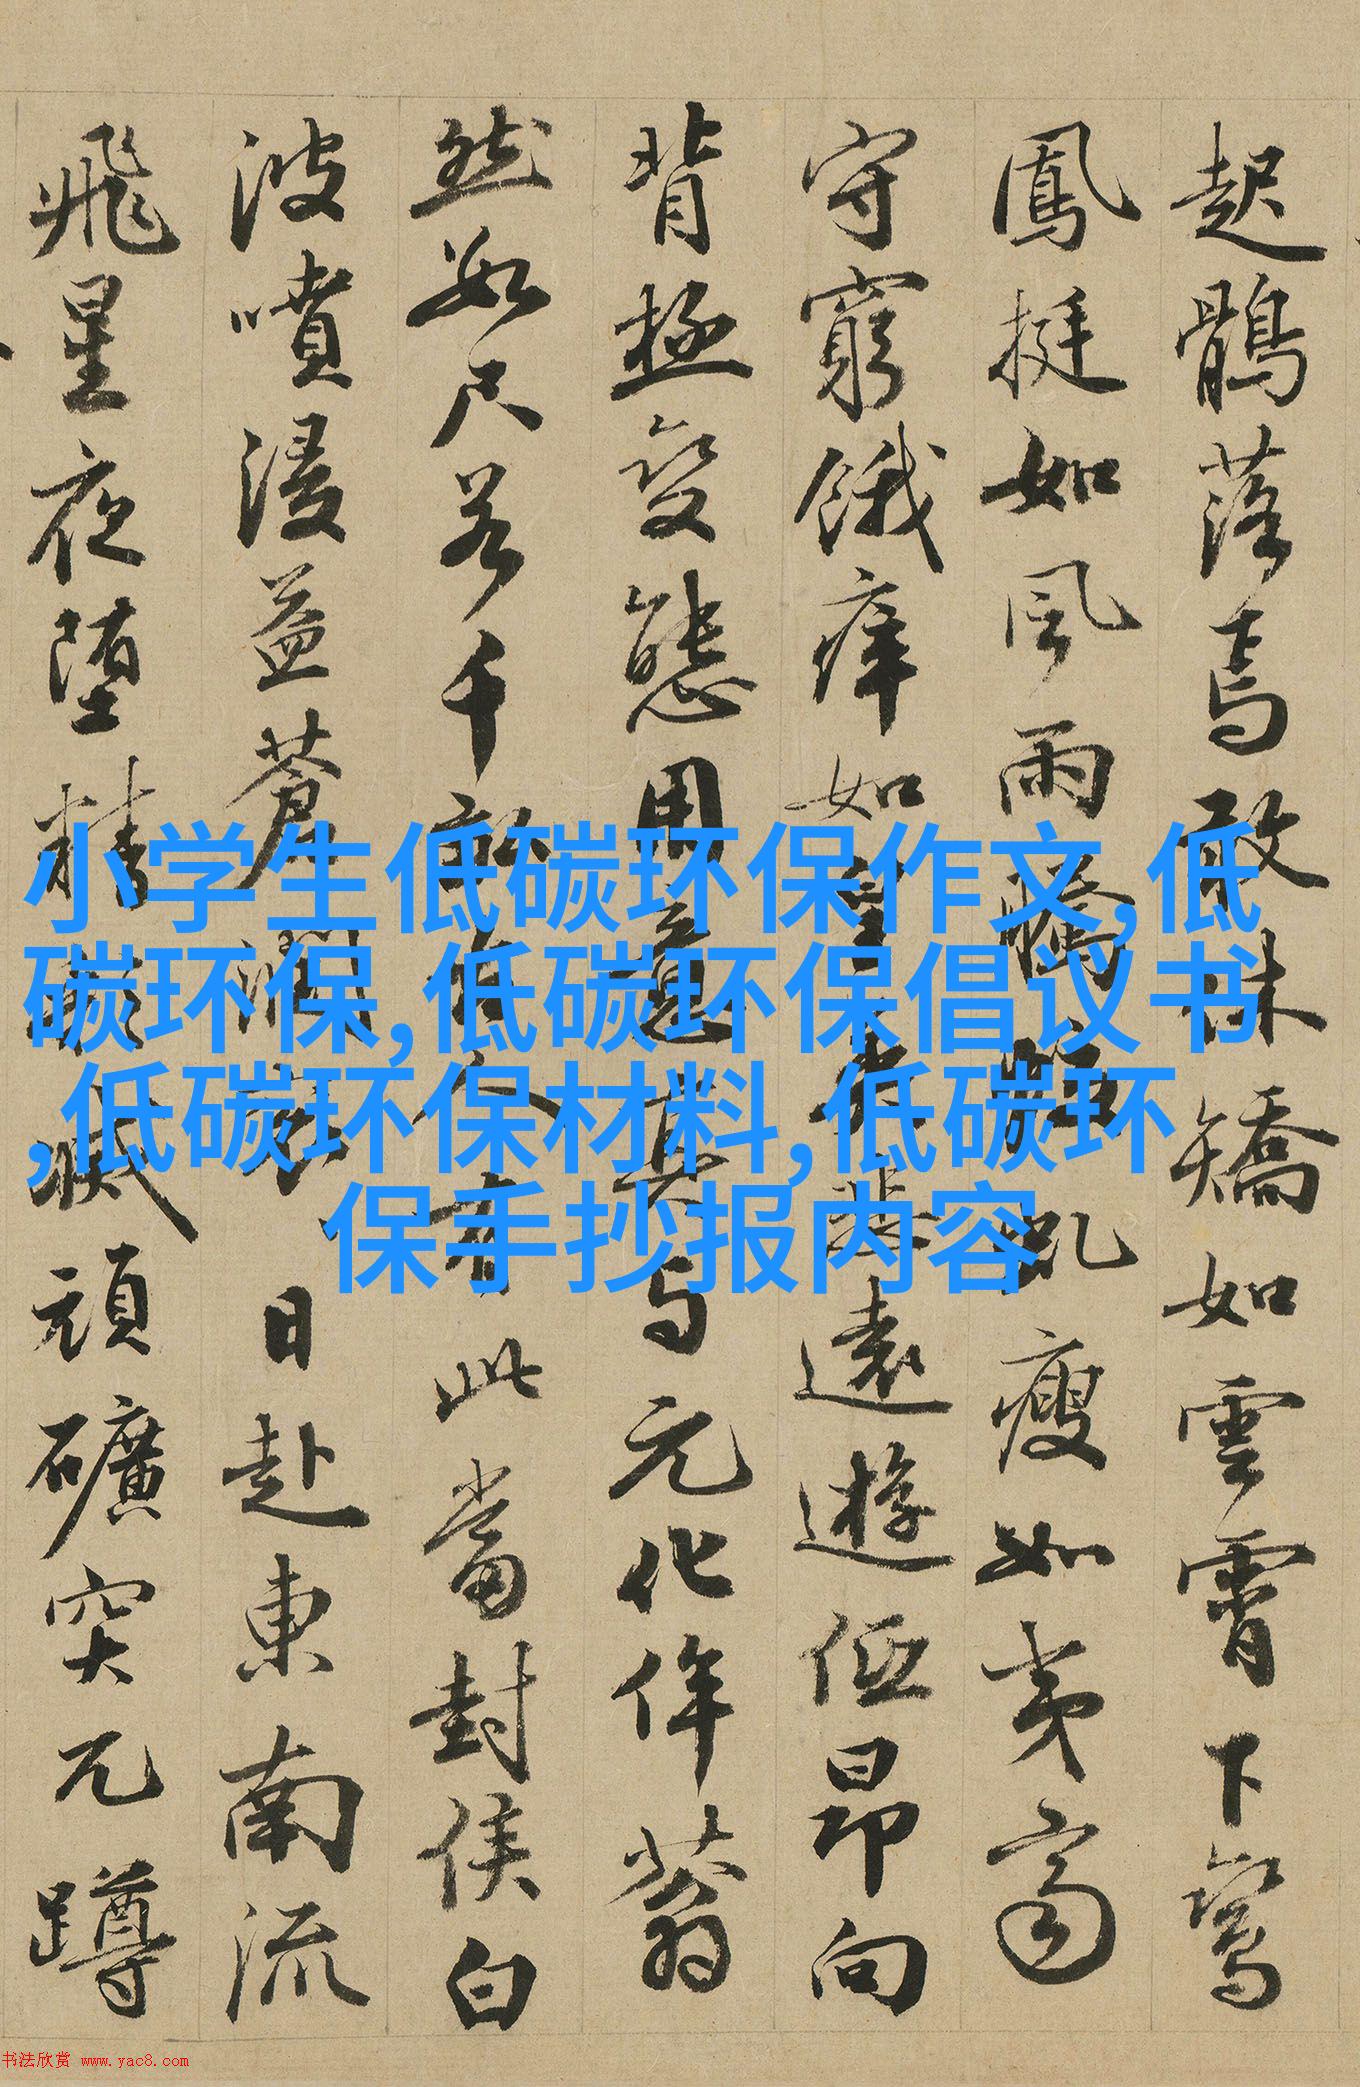 起鶻落焉敢昧矯如雲霄下鸞
鳳挺如風雨飢瘦如夷齊
守窮餓痒如皇英悲遠遊低昂向
背極變態用意莫与元化侔蓊
然數尺若千畝古人有此當封侯白
波噴浸益蒼潤日赴東南流
飛星夜堕精滅頑礦突兀蹲
小学生低碳环保作文,低
碳环保,低碳环保倡议书
,低碳环保材料,低碳环
保手抄报内容
书法欣赏 www.yac8.com